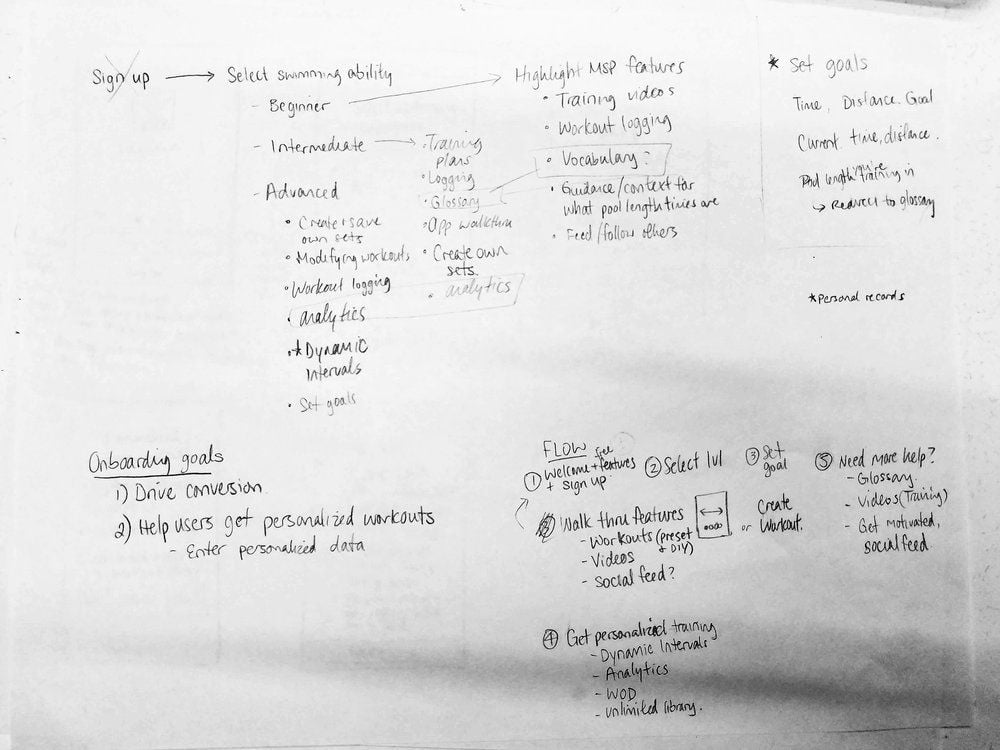 Sign up → Select swimming ability
- Beginner
- Intermediate →
- Advanced
• Create + save
own sets
• Modifying workouts
• Workout logging
• Analytics
• * Dynamic
Intervals
• Set goals
• Training
plans
• Logging
• Glossary
• App walkthru
• Create own
sets.
• analytics
Highlight MSP features
• Training videos
• Workout logging
• Vocabulary?
• Guidance/context for
what pool length times are
• Feed/follow others
* Set goals
Time, Distance. Goal
Current time, distance.
Pool length you're training in
↳ Redirect to glossary
* Personal records
Onboarding goals
1) Drive conversion
2) Help users get personalized workouts
- Enter personalized data
FLOW
① Welcome + see features
+ sign up
② Select lvl
③ Set
goal
⑤ Need more help?
- Glossary
- Videos (Training)
- Get motivated,
social feed.
Walk thru features
- Workouts (preset
+ DIY)
- Videos
- Social feed?
or Create
Workout.
④ Get personalized training
- Dynamic Intervals
- Analytics
- WOD
- unlimited library.